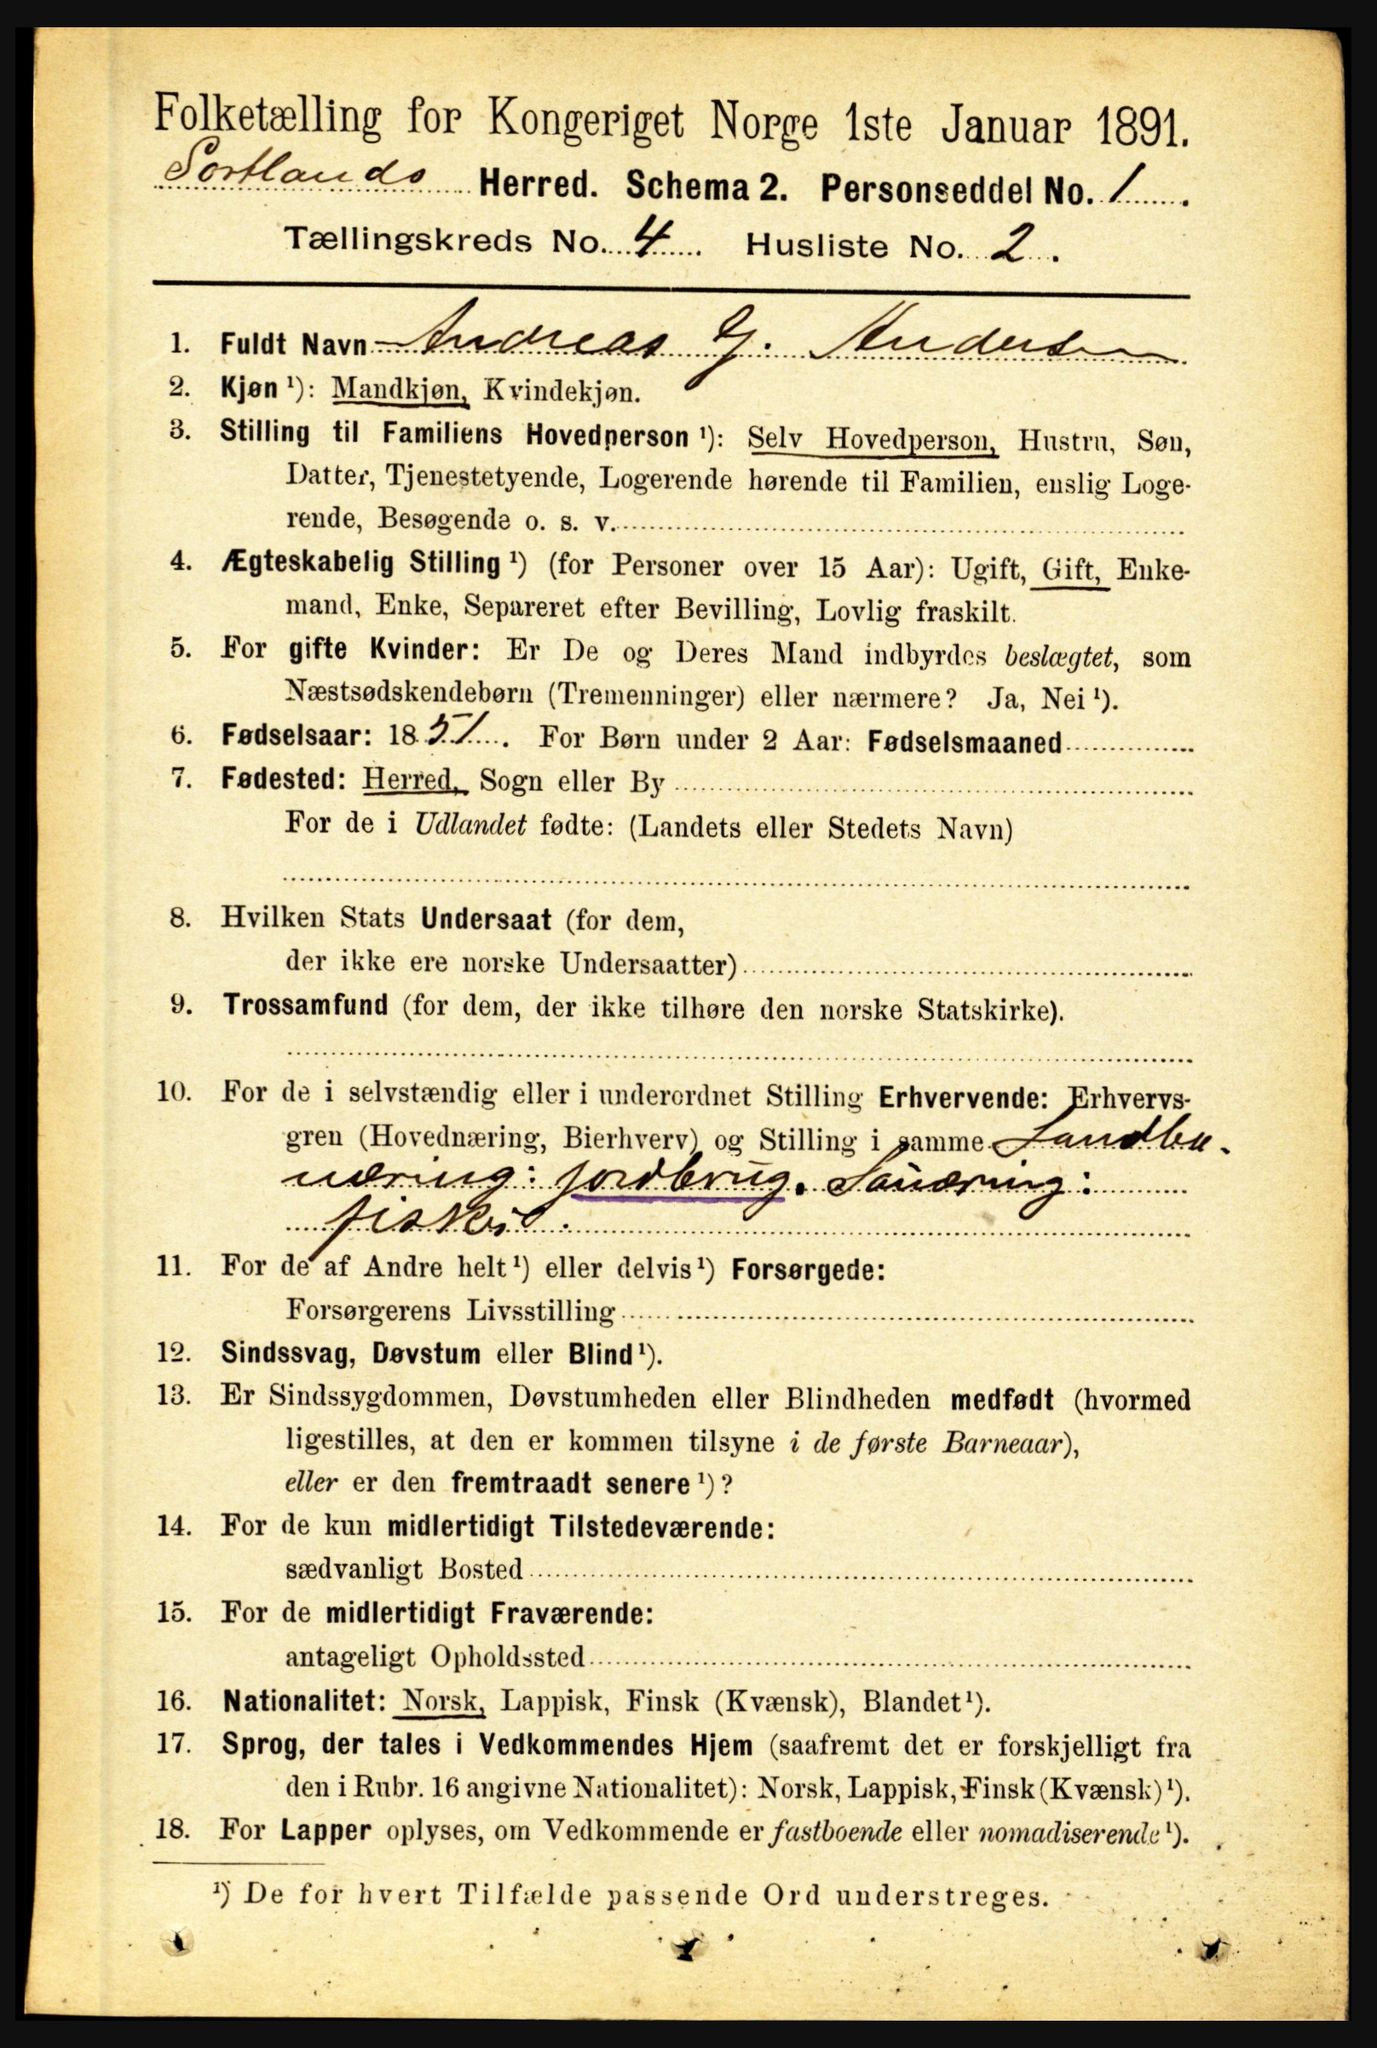 Folketælling for Kongeriget Norge 1ste Januar 1891.
Sortlands Herred. Schema 2. Personseddel No. 1.
Tællingskreds No. 4. Husliste No. 2.
1. Fuldt Navn Andreas G. Andersen
2. Kjøn ¹): Mandkjøn, Kvindekjøn.
3. Stilling til Familiens Hovedperson ¹): Selv Hovedperson, Hustru, Søn,
Datter, Tjenestetyende, Logerende hørende til Familien, enslig Loge-
rende, Besøgende o. s. v.
4. Ægteskabelig Stilling ¹) (for Personer over 15 Aar): Ugift, Gift, Enke-
mand, Enke, Separeret efter Bevilling, Lovlig fraskilt.
5. For gifte Kvinder: Er De og Deres Mand indbyrdes beslægtet, som
Næstsødskendebørn (Tremenninger) eller nærmere? Ja, Nei ¹).
6. Fødselsaar: 1851. For Børn under 2 Aar: Fødselsmaaned
7. Fødested: Herred, Sogn eller By
For de i Udlandet fødte: (Landets eller Stedets Navn)
8. Hvilken Stats Undersaat (for dem,
der ikke ere norske Undersaatter)
9. Trossamfund (for dem, der ikke tilhøre den norske Statskirke).
10. For de i selvstændig eller i underordnet Stilling Erhvervende: Erhvervs-
gren (Hovednæring, Bierhverv) og Stilling i samme
næring: jordbrug.
11. For de af Andre helt ¹) eller delvis ¹) Forsørgede:
Forsørgerens Livsstilling
12. Sindssvag, Døvstum eller Blind ¹).
13. Er Sindssygdommen, Døvstumheden eller Blindheden medfødt (hvormed
ligestilles, at den er kommen tilsyne i de første Barneaar),
eller er den fremtraadt senere ¹)?
14. For de kun midlertidigt Tilstedeværende:
sædvanligt Bosted
15. For de midlertidigt Fraværende:
antageligt Opholdssted
16. Nationalitet: Norsk, Lappisk, Finsk (Kvænsk), Blandet ¹).
17. Sprog, der tales i Vedkommendes Hjem (saafremt det er forskjelligt fra
den i Rubr. 16 angivne Nationalitet): Norsk, Lappisk, Finsk (Kvænsk) ¹).
18. For Lapper oplyses, om Vedkommende er fastboende eller nomadiserende ¹).
¹) De for hvert Tilfælde passende Ord understreges.